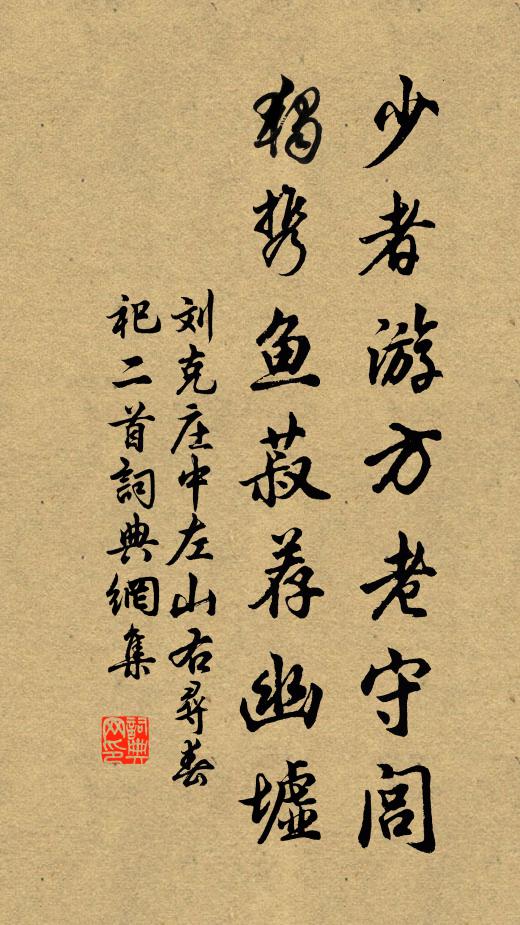 少者游方老守闾
独携鱼菽荐幽墟
刘克庄中左山右寻春
祀二首詞典網集
詞典网印